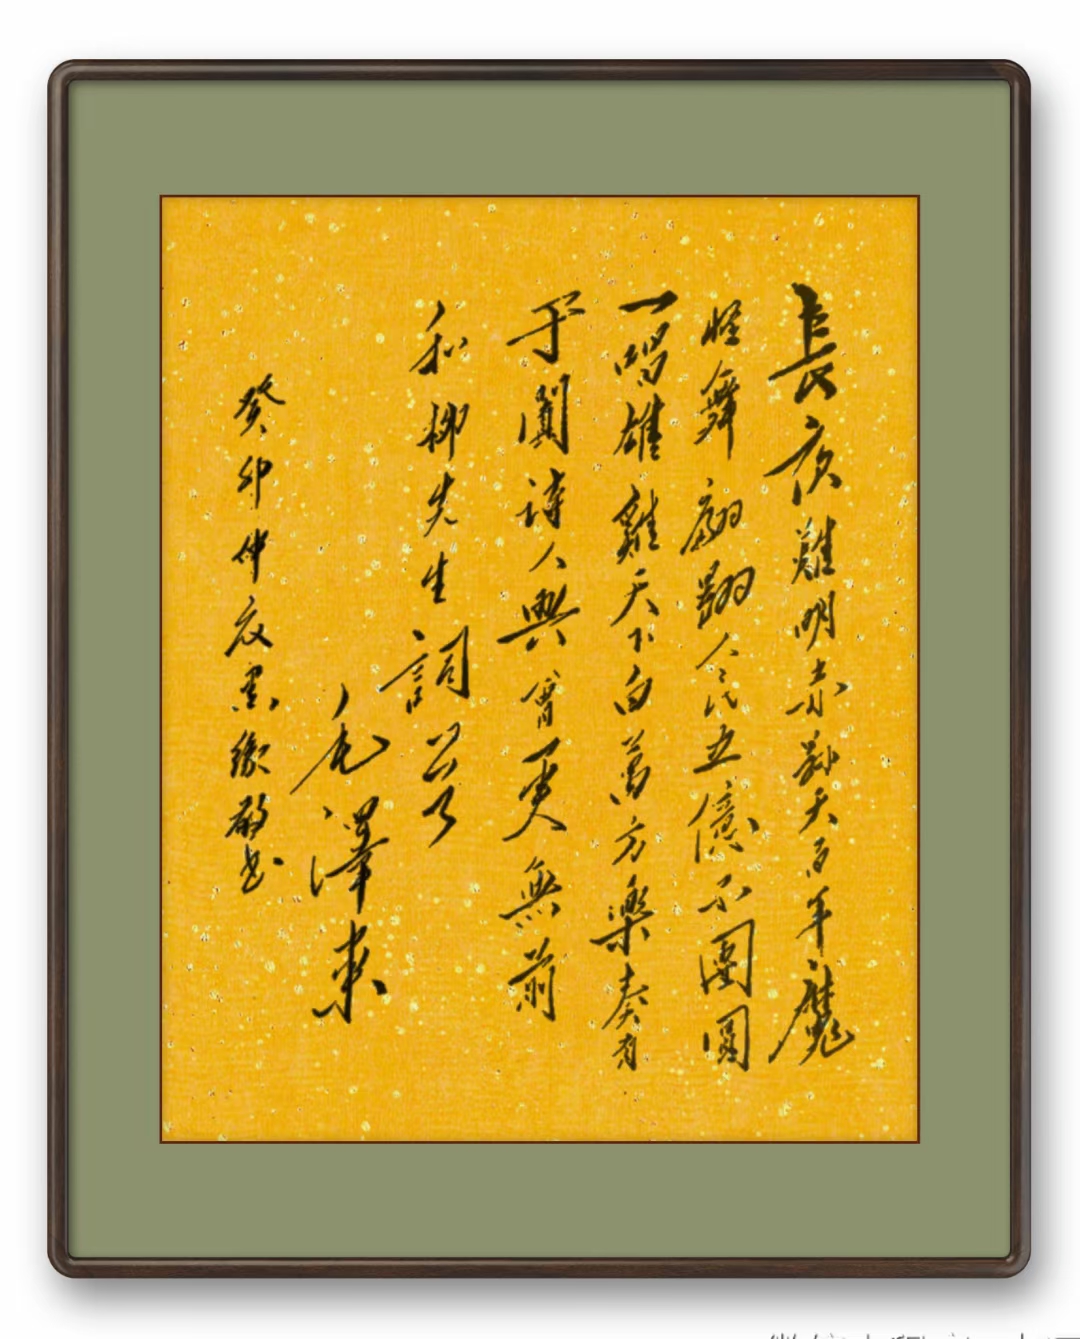 長夜難明赤縣天百年魔
怪舞翩人民五億不團圓
一唱雄雞天下白萬方樂奏有
于闐詩人興會更無前
和柳先生詞
毛澤東
癸卯仲夏墨書